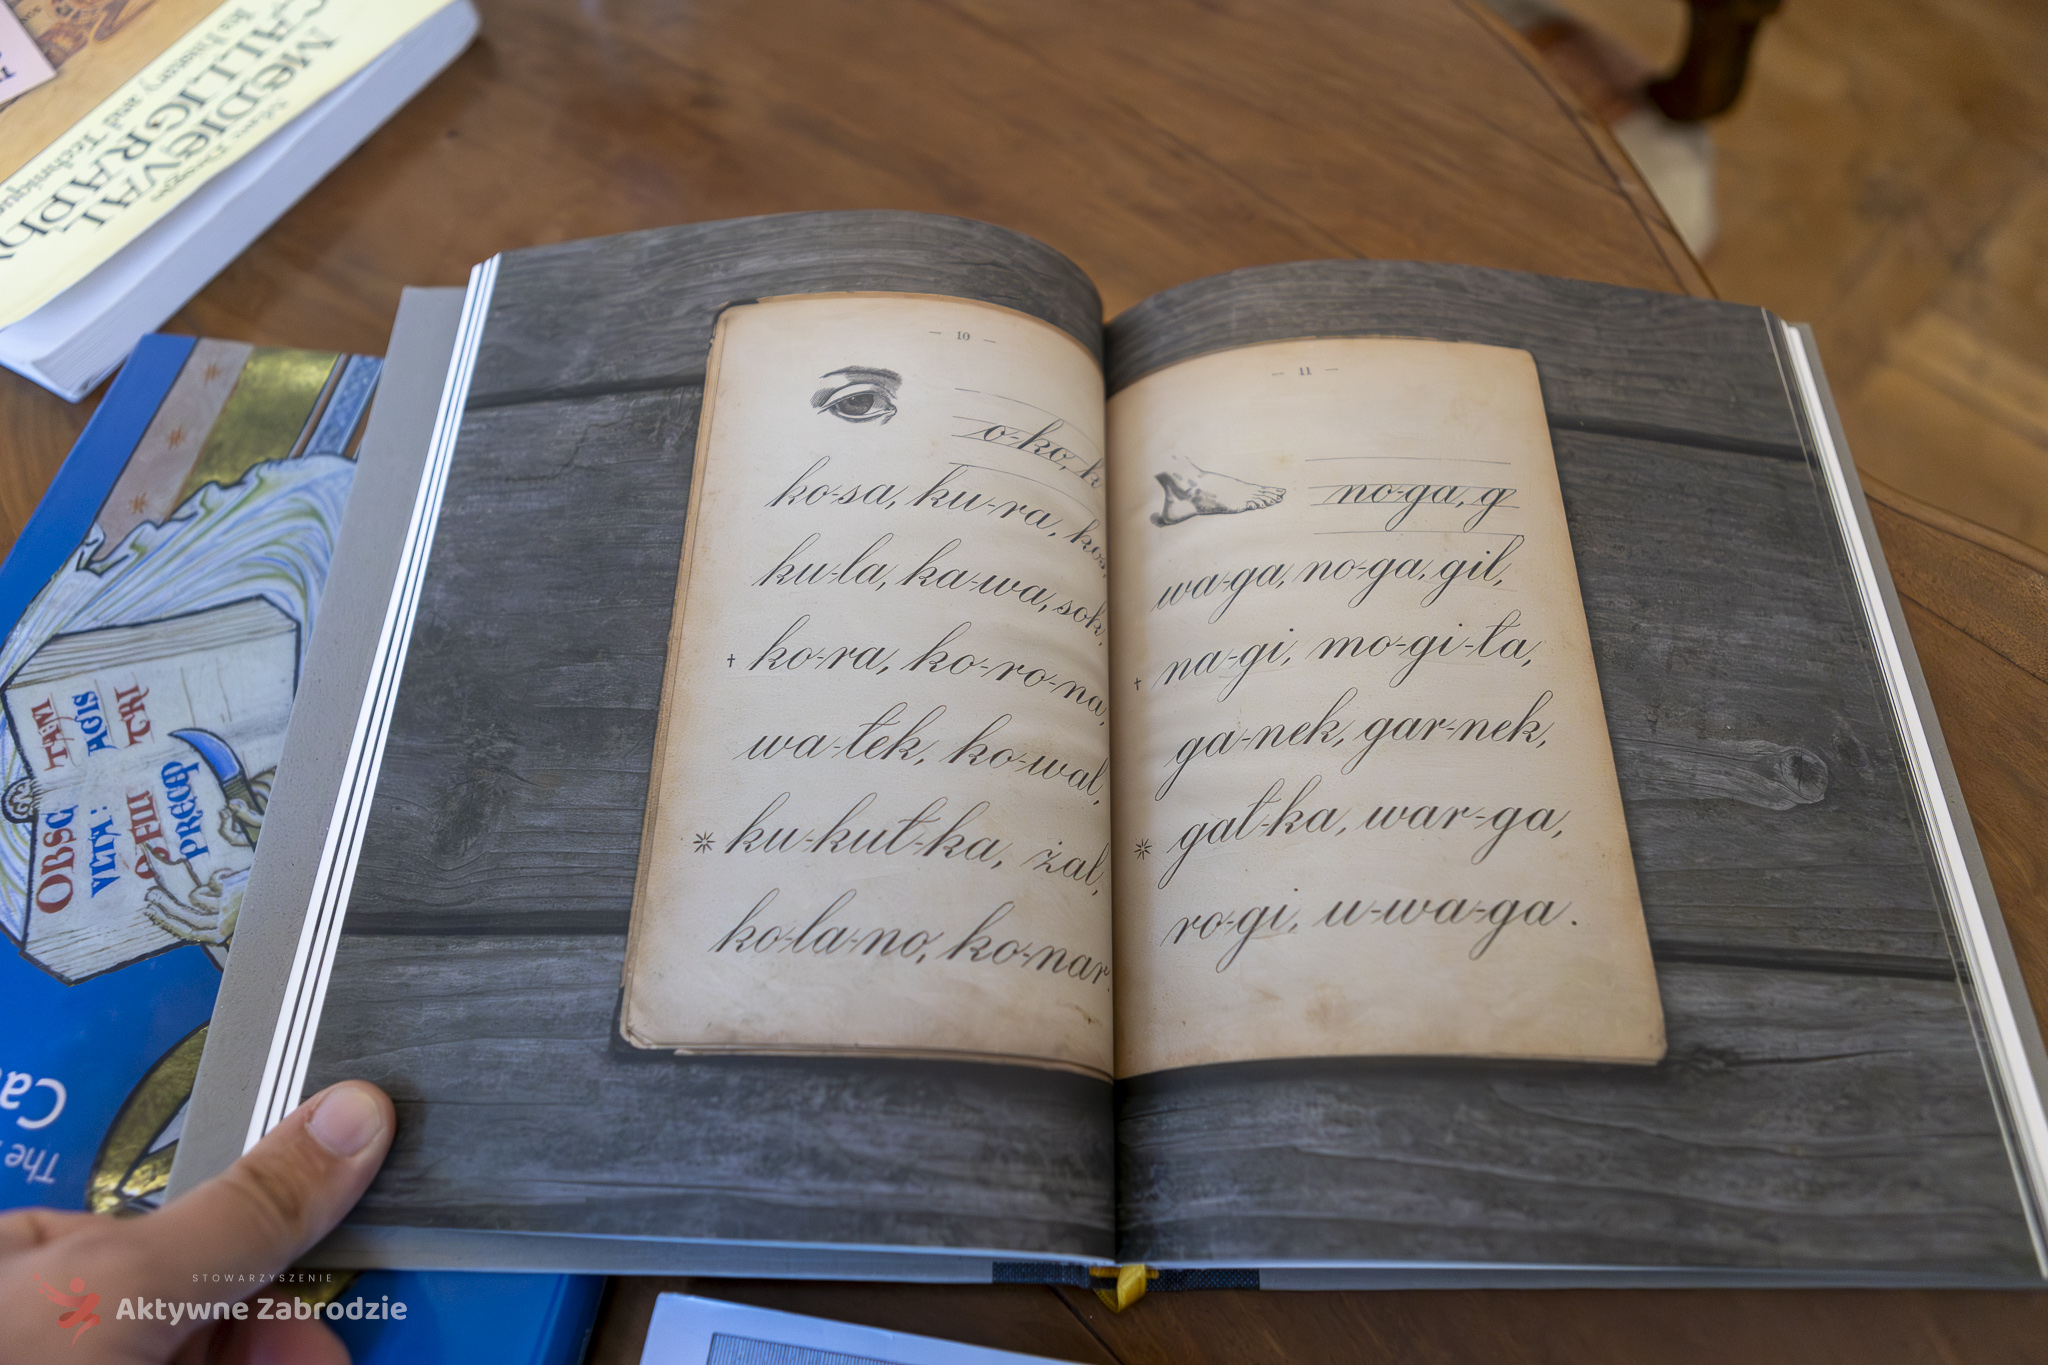 MEDIEVAL
CALLIGRAPHY
Its History and Technique
OBSC
VLTA:
TAM
AGIS
TRI
PRECO
The
Ca
— 10 —
o-ko, k
ko-sa, ku-ra, kos,
ku-la, ka-wa, sok,
† ko-ra, ko-ro-na,
wa-tek, ko-wal,
* ku-kuł-ka, żal,
ko-la-no, ko-nar.
— 11 —
no-ga, g
wa-ga, no-ga, gil,
† na-gi, mo-gi-ła,
ga-nek, gar-nek,
* gał-ka, war-ga,
ro-gi, u-wa-ga.
STOWARZYSZENIE
Aktywne Zabrodzie